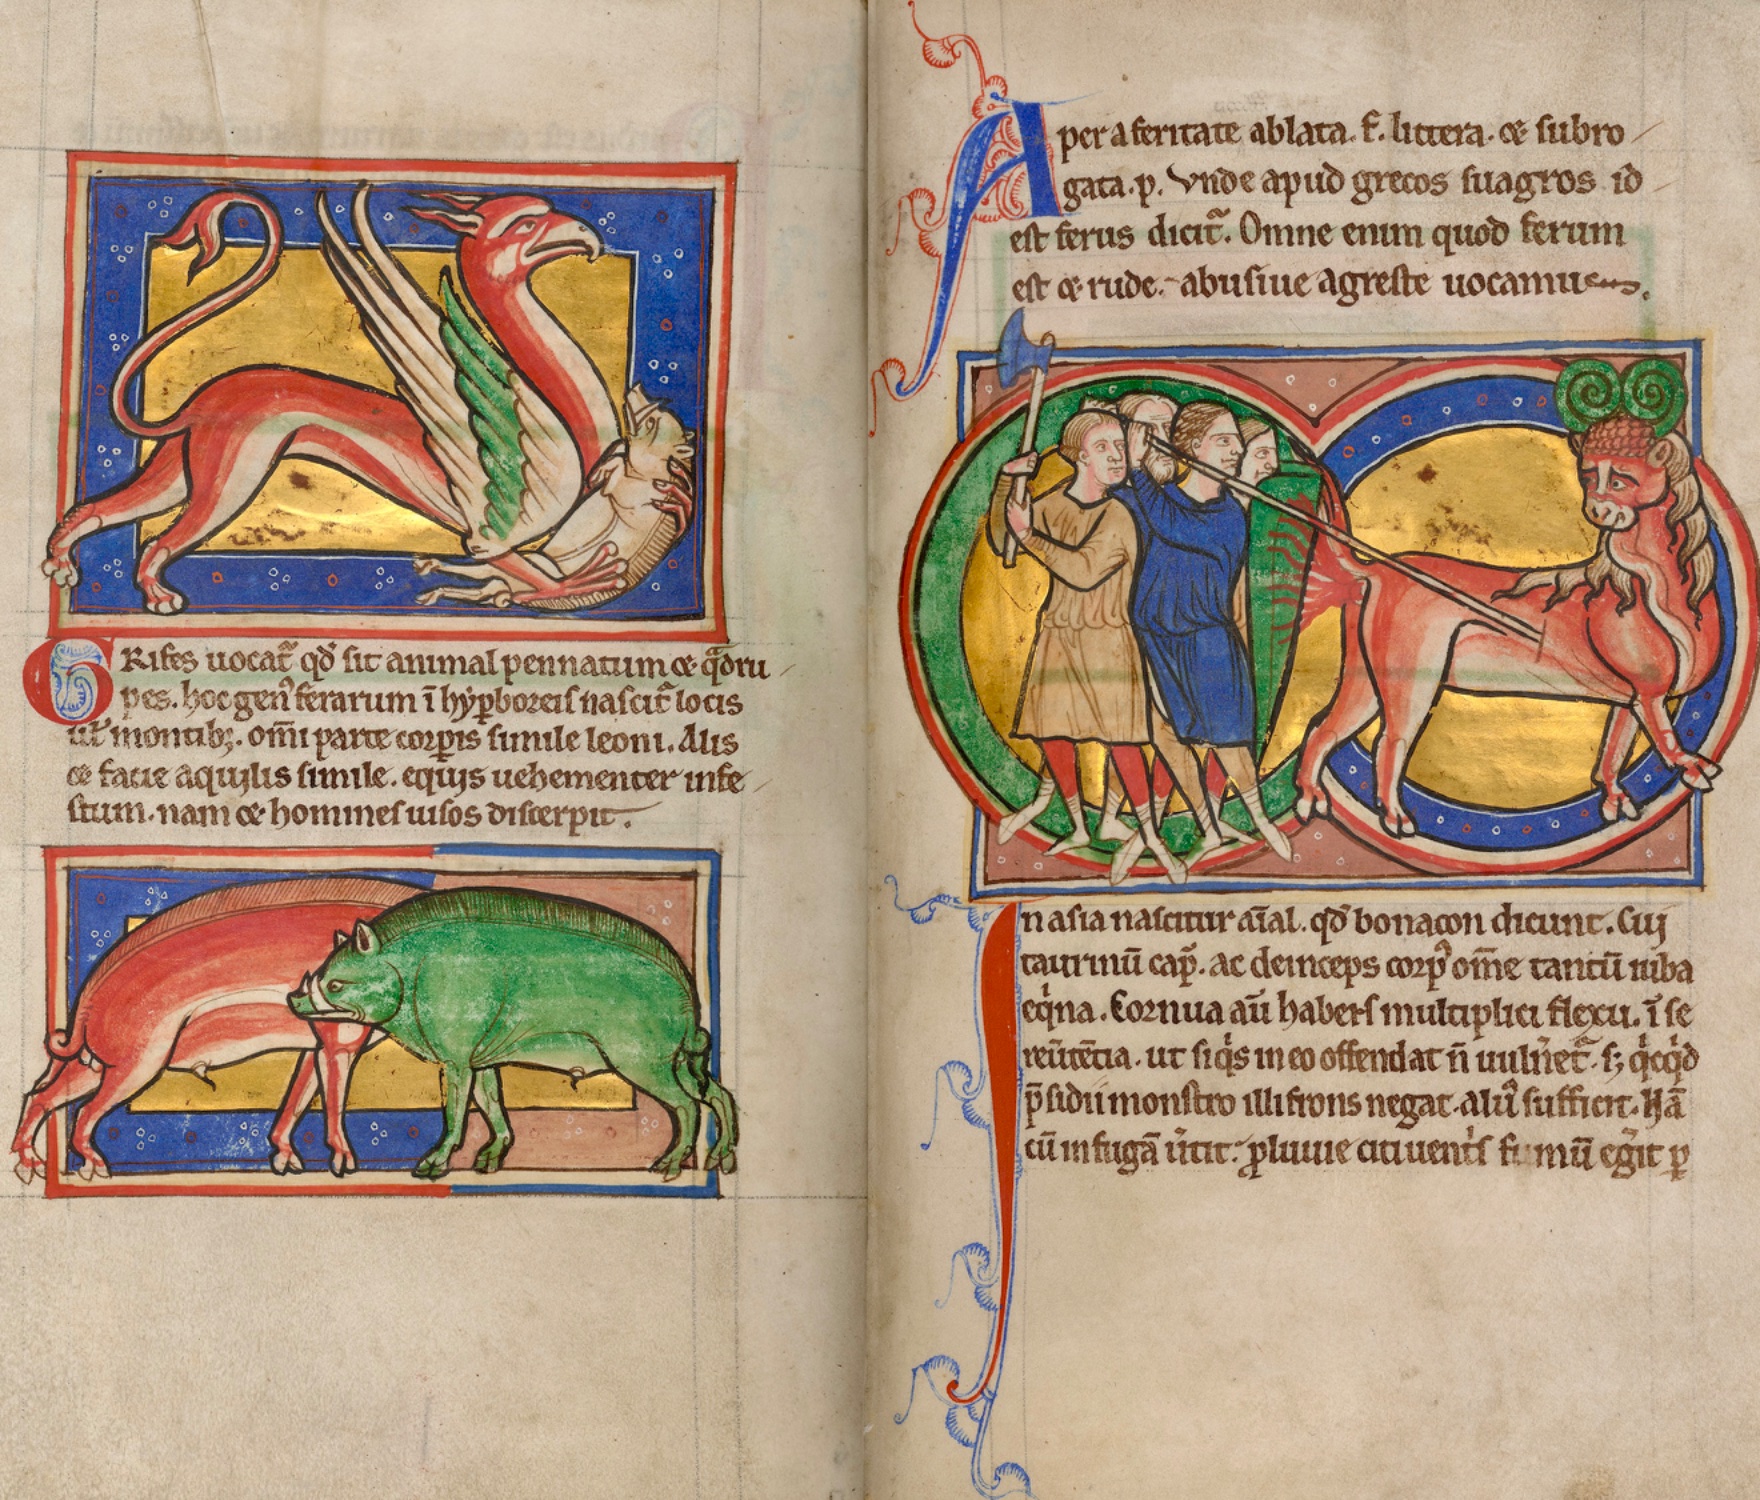 GRifes uocat̉ qd̓ sit animal pennatum ⁊ qͣdru
pes. hoc gen᷒ ferarum ī hẏꝑboreis nascit̉ locis
ul̓ montibꝫ. om̄i parte corꝑis simile leoni. Alis
⁊ facie aquilis simile. equis uehementer infe
stum. nam ⁊ homines uisos discerpit.
Aper a feritate ablata. f. littera. ⁊ subro
gata. p. Vnde apud grecos suagros id
est ferus dicit̉. Omne enim quod ferum
est ⁊ rude. abusiue agreste uocamus.
In asia nascitur aīal. qd̓ bonacon dicunt. Cui
taurinū cap̓. ac deinceps corp᷒ om̄e tantū iuba
eqͥna. Cornua aū habens multiplici flexu. ī se
reūtētia. ut siqͥs in eo offendat n̄ uuln̓et̉. sꝫ qͥcqͥd
p̄sidii monstro illi frons negat. alu᷒ sufficit. Nā
cū in fugā u̓tit. ꝓluuie citi uentͥs fumū eg̓it ꝑ